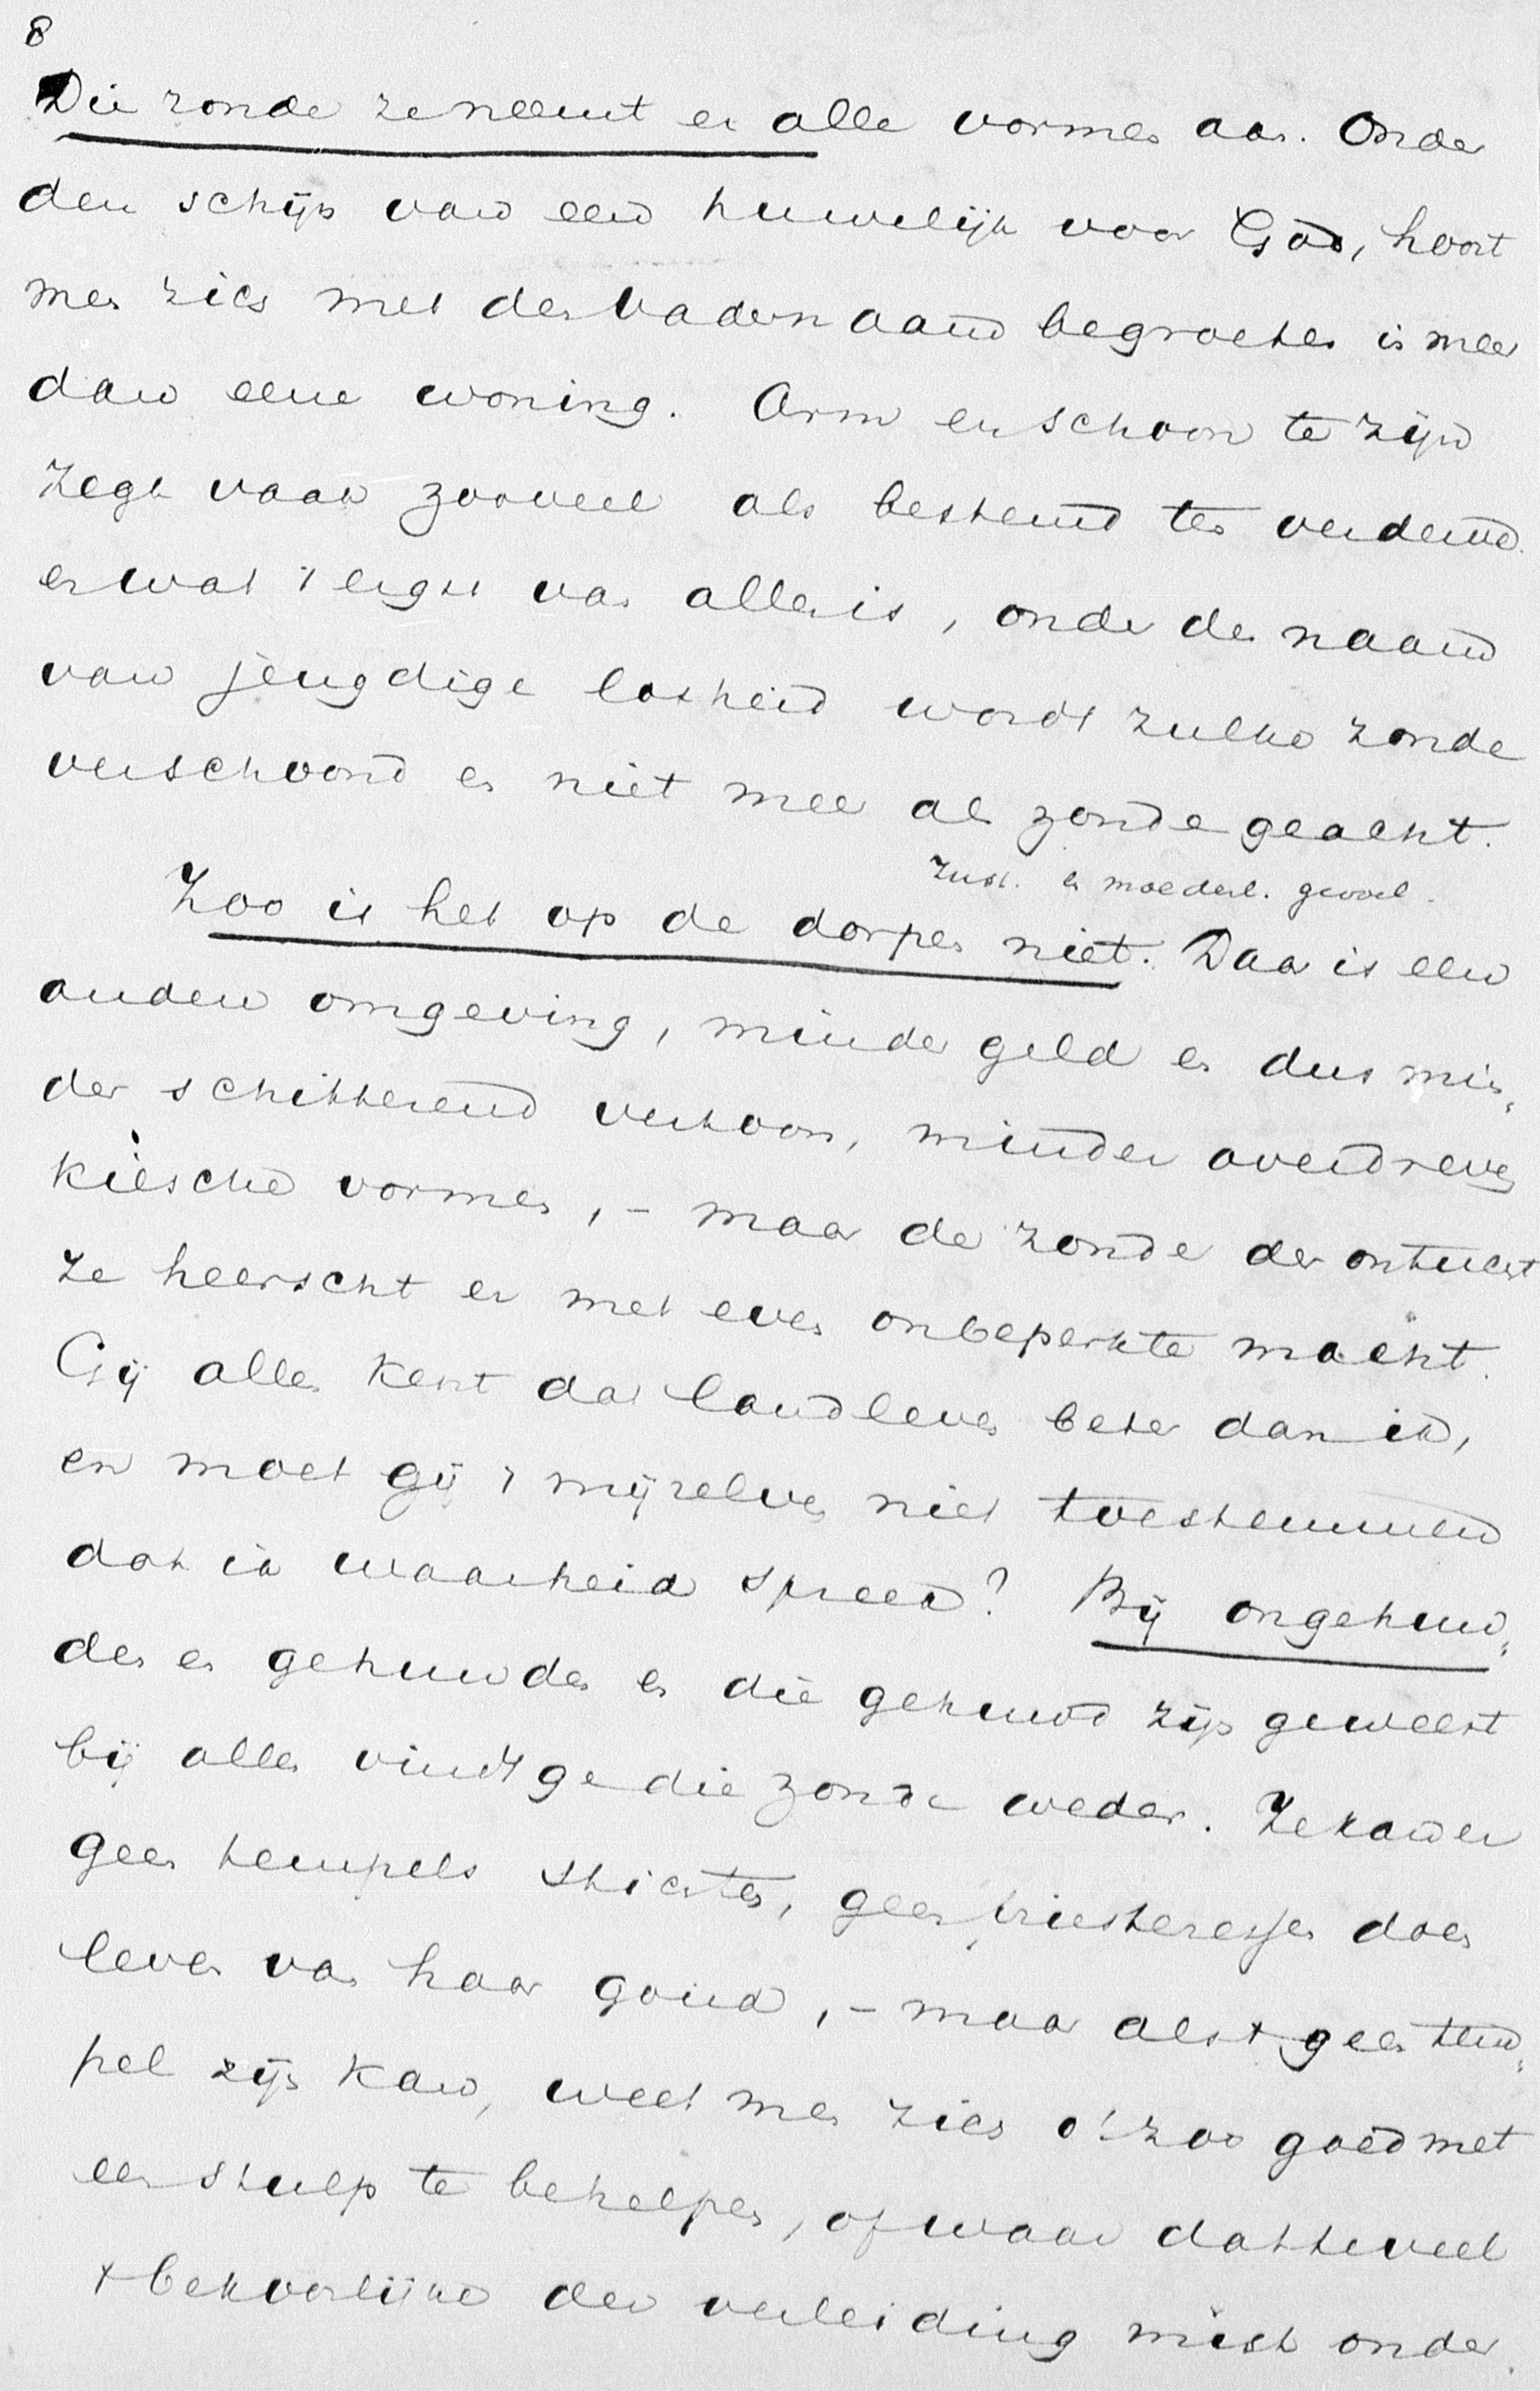 8
Die zonde ze neemt er alle vormen aan. Onder
den schijn van een huwelijk voor God, hoort
men zich met den vadernaam begroeten in meer
dan eene woning. Arm en schoon te zijn
zegt vaak zooveel als bestemd ten verderve.
en wat 't ergst van allen is, onder den naam
van jeugdige losheid wordt zulke zonde
verschoond en niet meer als zonde geacht.
zust. en moederl. gevoel.
Zoo is het op de dorpen niet. Daar is een
andere omgeving, minder geld en dus min„
der schitterend vertoon, minder overdreven
kiesche vormen, – maar de zonde der ontucht
ze heerscht er met even onbeperkte macht.
Gij allen kent dat landleven beter dan ik,
en moet gij 't mijzelven niet toestemmen
dat ik waarheid spreek? Bij ongehuw„
den en gehuwden en die gehuwd zijn geweest
bij allen vindt ge die zonde weder. Ze kan er
geen tempels stichten, geen priesteressen doen
leven van haar goud, – maar als 't geen tem„
pel zijn kan, weet men zich o! zoo goed met
een stulp te behelpen, of waar dat teveel
't bekoorlijke der verleiding mist onder„